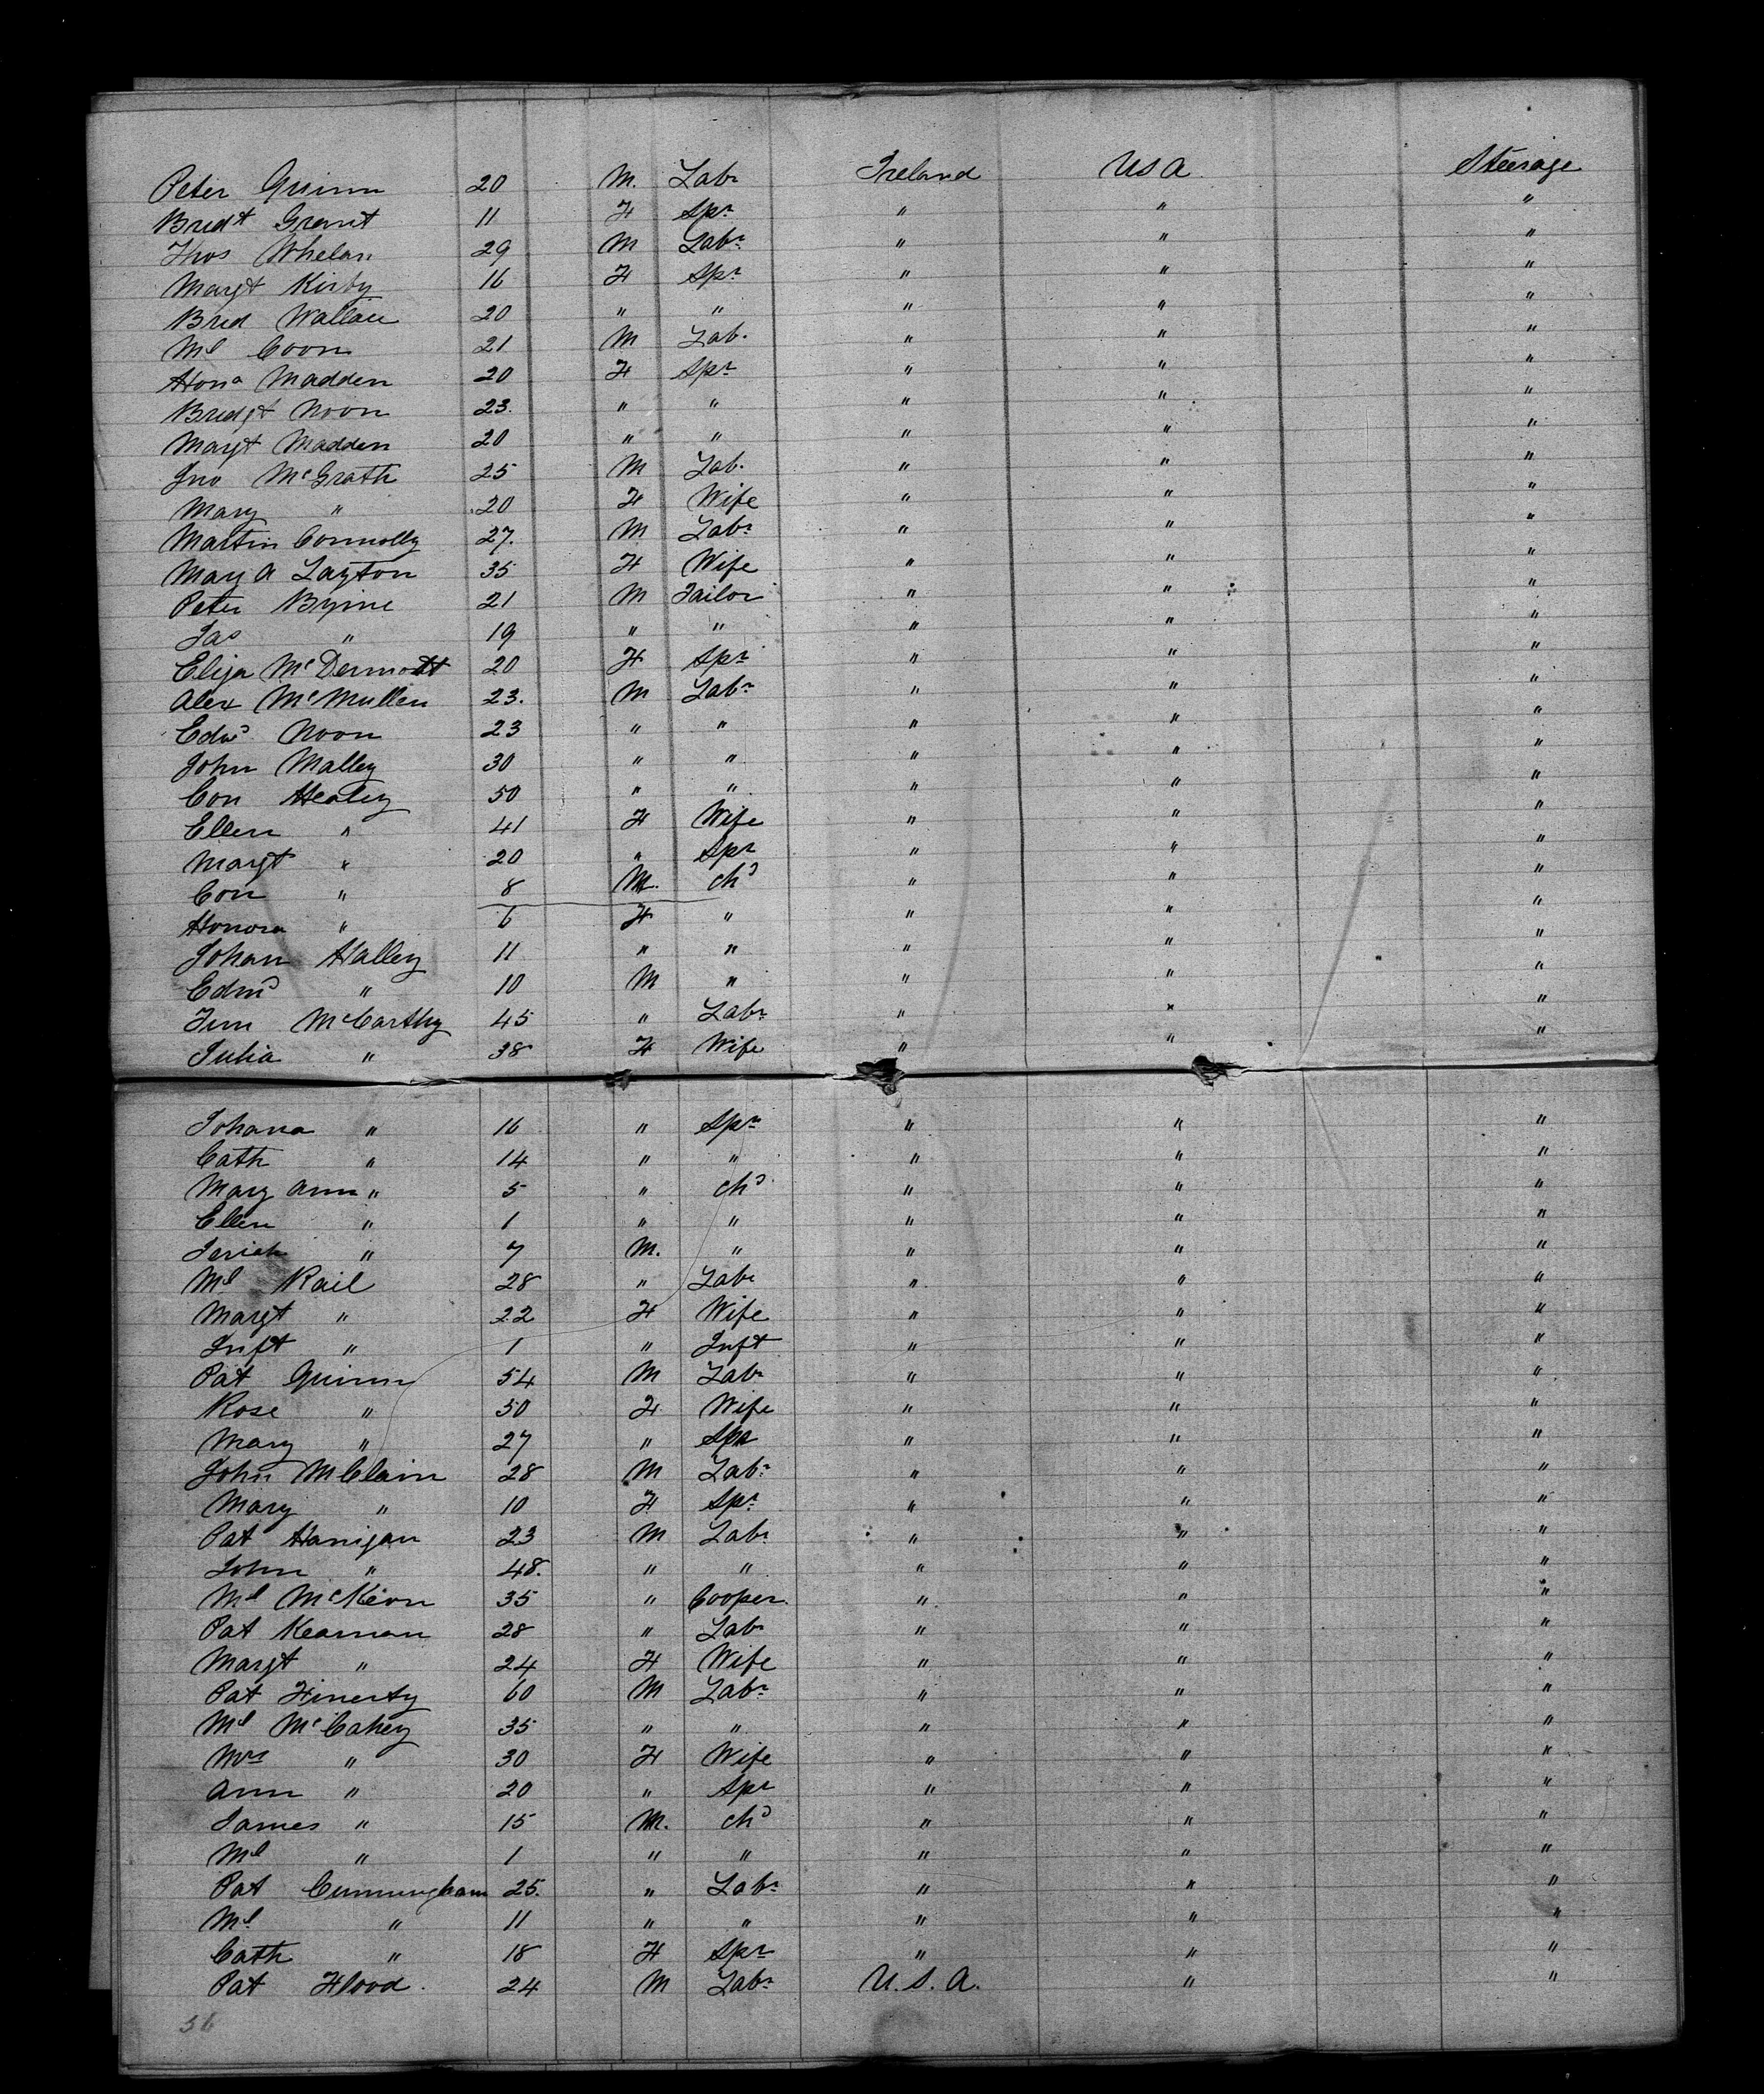 Peter Quinn 20 M. Labr Ireland USA Steerage
Bridt Grant 11 F Spr " " "
Thos Whelan 29 M Labr " " "
Margt Kirby 16 F Spr " " "
Brid Wallace 20 " " " " "
Ml Coon 21 M Lab. " " "
Hona Madden 20 F Spr " " "
Bridgt Noon 23. " " " " "
Margt Madden 20 " " " " "
Jno McGrath 25 M Lab. " " "
Mary " 20 F Wife " " "
Martin Connolly 27. M Labr " " "
Mary A Layton 35 F Wife " " "
Peter Byrne 21 M Tailor " " "
Jas " 19 " " " " "
Eliza McDermott 20 F Spr " " "
Alex McMullen 23. M Labr " " "
Edwd Noon 23 " " " " "
John Malley 30 " " " " "
Con Healey 50 " " " " "
Ellen " 41 F Wife " " "
Margt " 20 " Spr " " "
Con " 8 M. chd " " "
Honora " 6 F " " " "
Johan Halley 11 " " " " "
Edmd " 10 M " " " "
Tim McCarthy 45 " Labr " " "
Julia " 38 F Wife " " "
Johana " 16 " Spr " " "
Cath " 14 " " " " "
Mary Ann " 5 " chd " " "
Ellen " 1 " " " " "
Jeriah " 7 M. " " " "
Ml Kail 28 " Labr " " "
Margt " 22 F Wife " " "
Inft " 1 " Inft " " "
Pat Quinn 54 M Labr " " "
Rose " 50 F Wife " " "
Mary " 27 " Spr " " "
John McClain 28 M Labr " " "
Mary " 10 F Spr " " "
Pat Hanigan 23 M Labr " " "
John " 48. " " " " "
Ml McKeon 35 " Cooper. " " "
Pat Kearnan 28 " Labr " " "
Margt " 24 F Wife " " "
Pat Finerty 60 M Labr " " "
Ml McCahey 35 " " " " "
Mrs " 30 F Wife " " "
Ann " 20 " Spr " " "
James " 15 M. chd " " "
Ml " 1 " " " " "
Pat Cunningham 25. " Labr " " "
Ml " 11 " " " " "
Cath " 18 F Spr " " "
Pat Flood. 24 M Labr U.S.A. " "
56